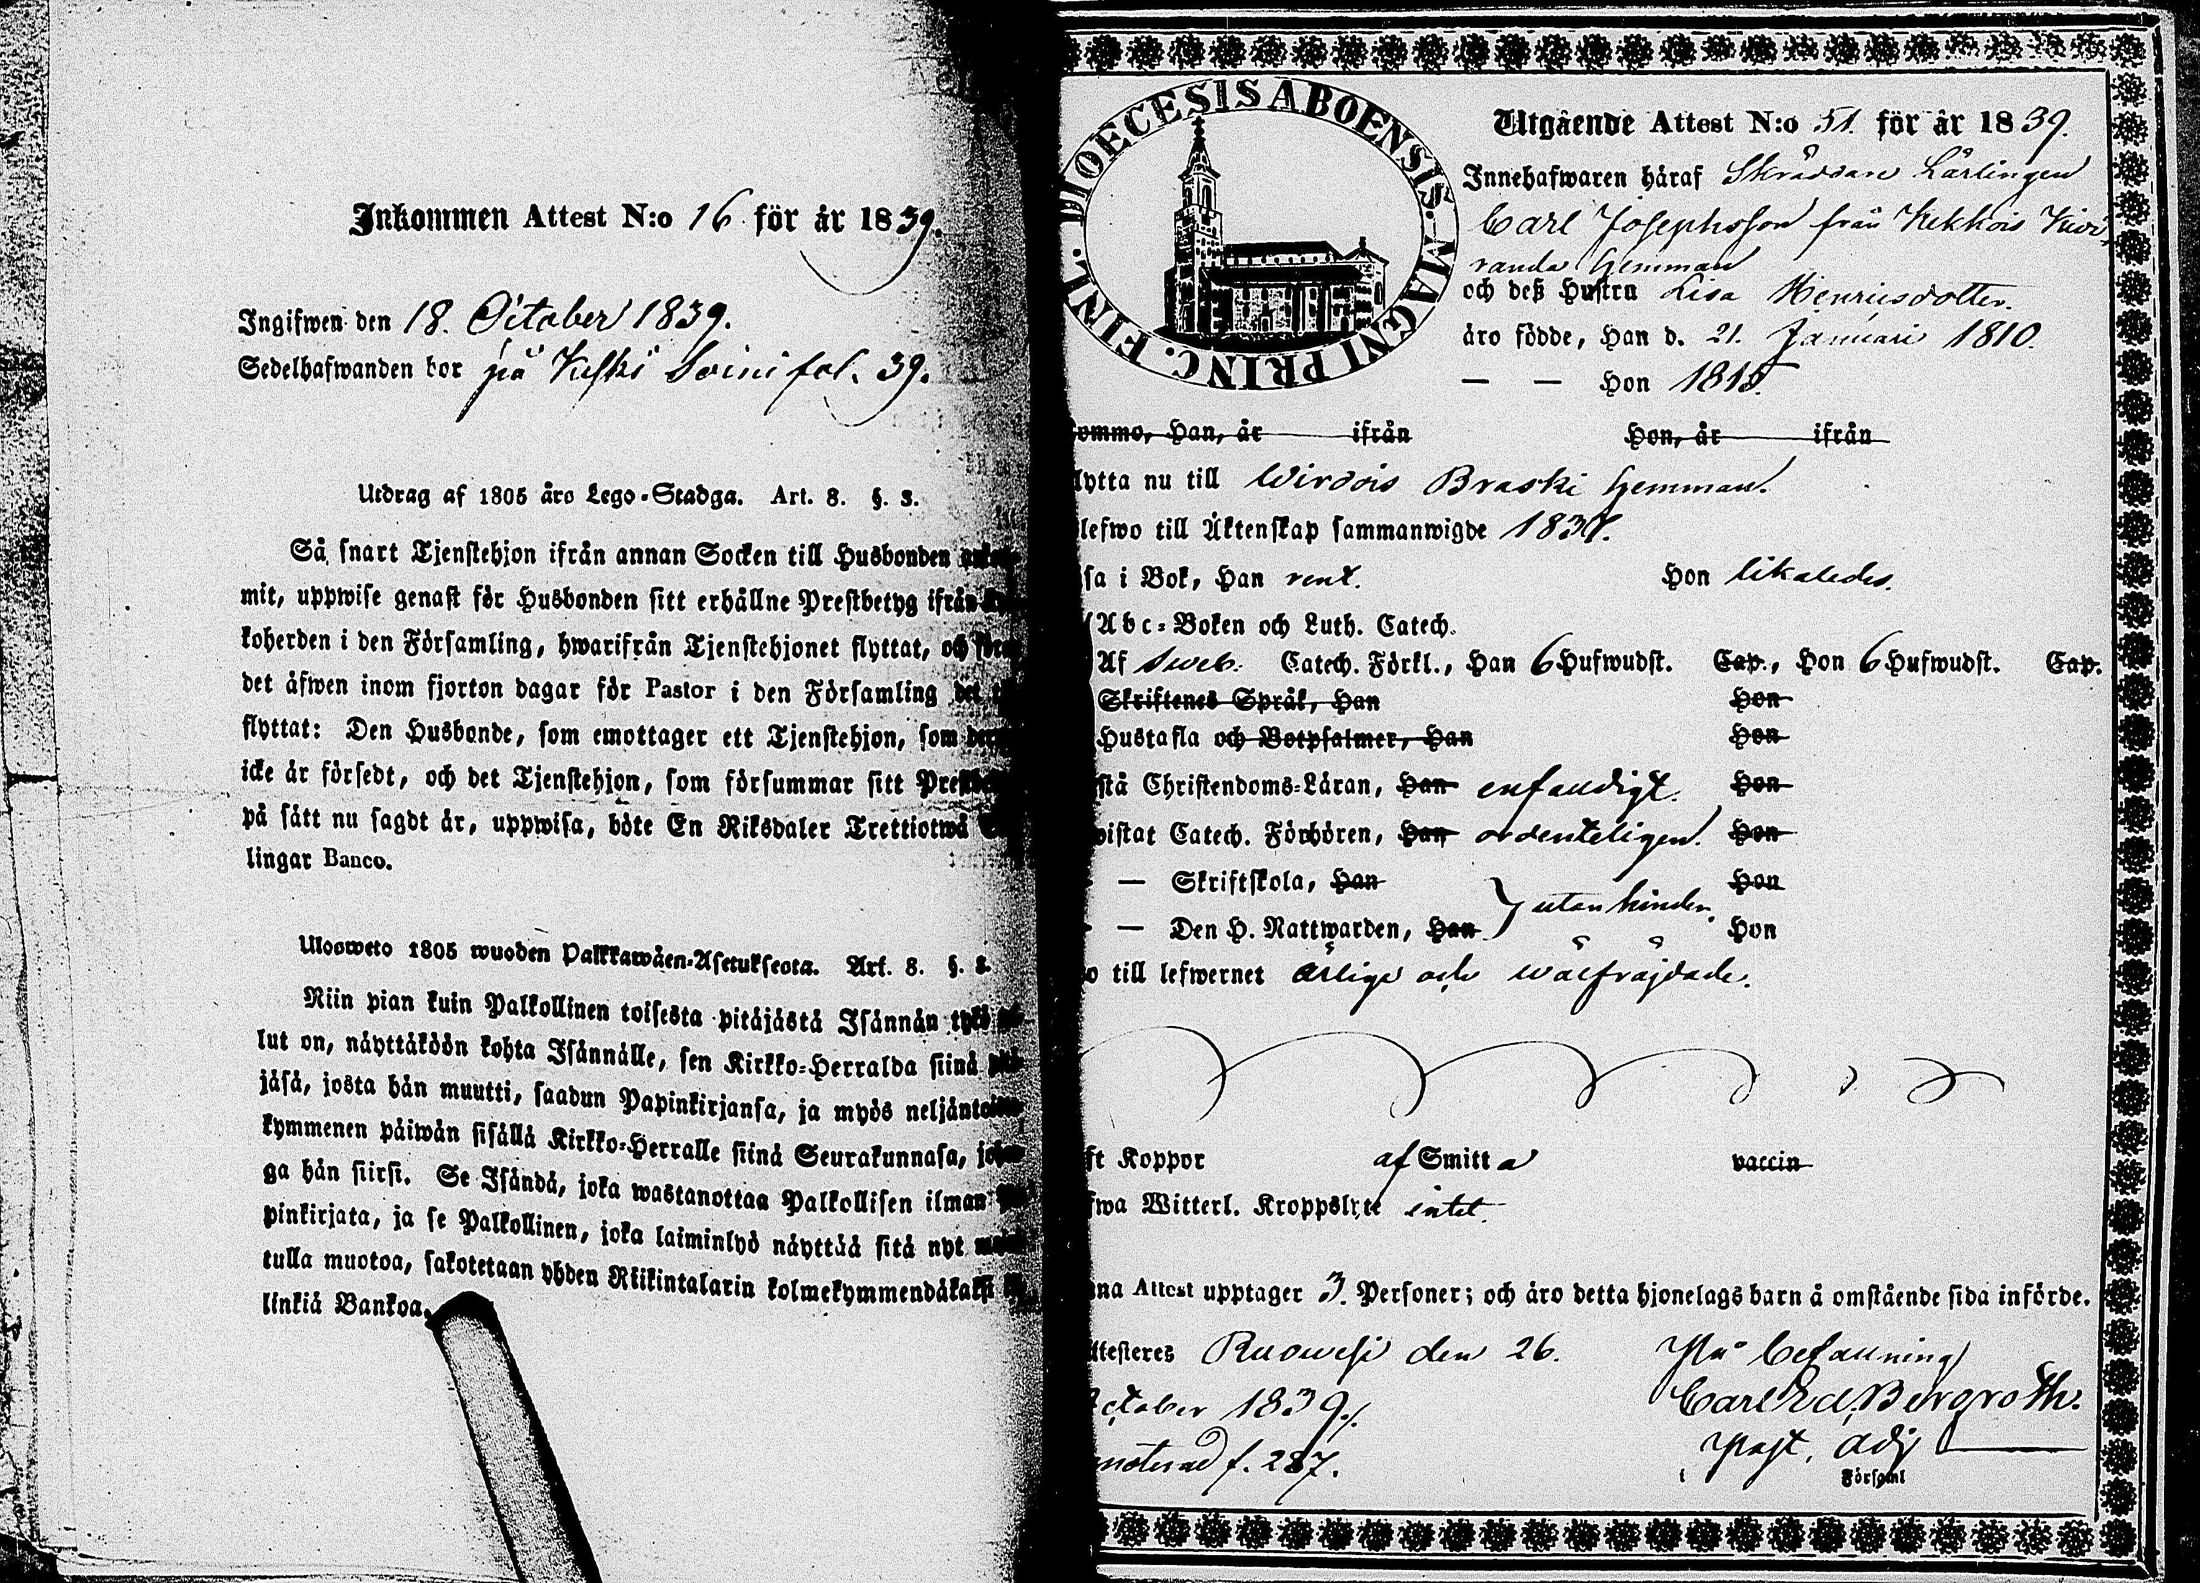 Inkommen Attest N:o 16 för år 1839.
Ingifwen den 18. October 1839.
Sedelhafwanden bor på Keski Soini fol. 39.
Utdrag af 1805 års Lego-Stadga. Art. 8. §. 3.
Så snart Tjenstehjon ifrån annan Socken till Husbonden
mit, uppwise genast för Husbonden sitt erhållne Prestbetyg ifrån
koherden i den Församling, hwarifrån Tjenstehjonet flyttat, och
det åfwen inom fjorton dagar för Pastor i den Församling det
flyttat: Den Husbonde, som emottager ett Tjenstehjon, som
icke är försedt, och det Tjenstehjon, som försummar sitt
på sätt nu sagdt är, uppwisa, böte En Riksdaler Trettiotwå
lingar Banco.
Uloswato 1805 wuoden Palkkawäen-Asetuksesta. Art. 8. §. 3.
Niin pian kuin Palkollinen toisesta pitäjästä Isännän tykö
lut on, näyttäköön kohta Isännälle, sen Kirkko-Herralda siinä
jäsä, josta hän muutti, saadun Papinkirjansa, ja myös neljäntoista
kymmenen päiwän sisällä Kirkko-Herralle siinä Seurakunnasa,
ga hän siirsi. Se Isändä, joka wastanottaa Palkollisen ilman
pinkirjata, ja se Palkollinen, joka laiminlyö näyttää sitä nyt
tulla muotoa, sakotetaan yhden Riikintalarin kolmekymmendäkaksi
linkiä Bankoa.
DIOECESIS ABOENSIS. MAGNI PRINC. FINL.
Utgående Attest N:o 51. för år 1839.
Innehafwaren häraf Skräddare Lärlingen
Carl Josephsson från Kekkois Kivi
randa hemman
och deß Hustru Lisa Henricsdotter.
äro födde, Han d. 21. Januari 1810.
— — Hon 1815.
ommo, Han, år ifrån Hon, år ifrån
lytta nu till Wirdois Braski hemman.
lefwo till Äktenskap sammanwigde 1837.
sa i Bok, Han rent. Hon likaledes.
Abc-Boken och Luth. Catech.
Af Sweb. Catech. Förkl., Han 6 Hufwudst. Cap., Hon 6 Hufwudst. Cap.
Skriftenes Språk, Han Hon
Hustafla och Botpsalmer, Han Hon
stå Christendoms-Läran, Han enfaldigt. Hon
wistat Catech. Förhören, Han ordenteligen. Hon
— Skriftskola, Han Hon
} utan hinder.
— Den H. Nattwarden, Han Hon
o till lefwernet ärlige och wälfräjdade.
ft Koppor af Smitta vaccin
fwa Witterl. Kroppslyte intet.
na Attest upptager 3. Personer; och äro detta hjonelags barn å omstående sida införde.
ttesteres Ruowesi den 26.
October 1839./.
noterad f. 287.
På befallning
Carl Ed. Bergroth.
Past. Adj
i Församl